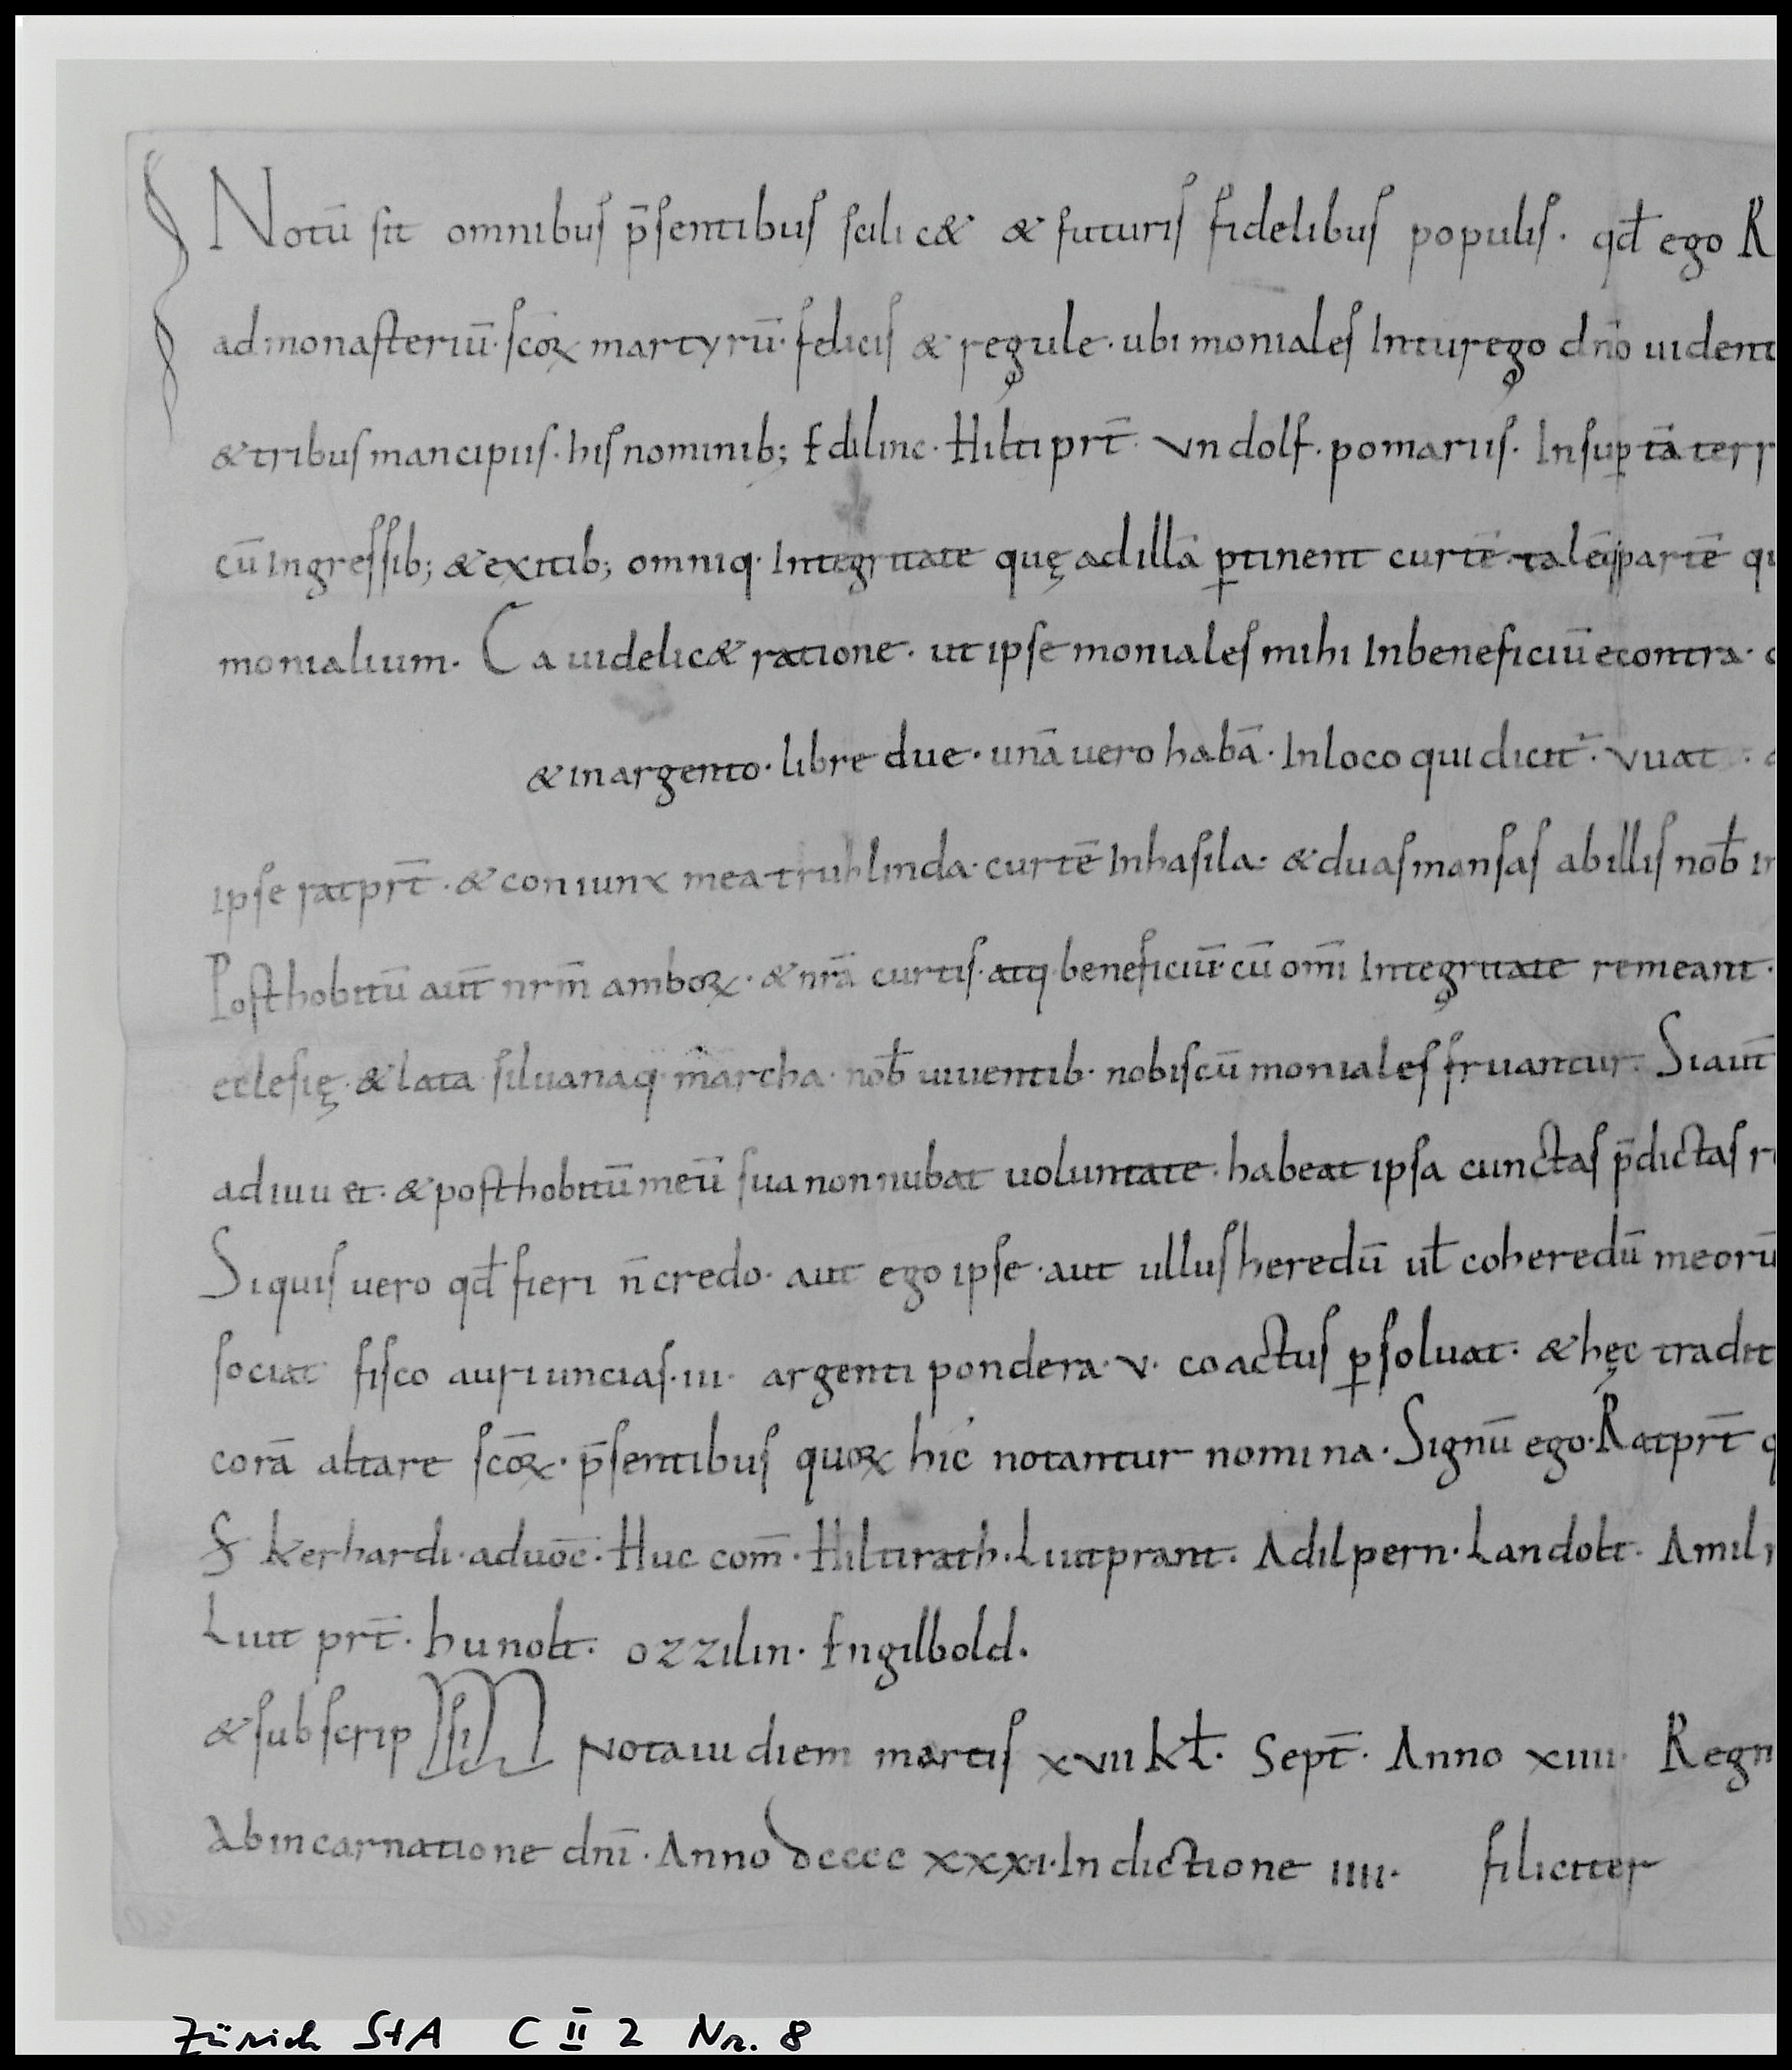 Notū sit omnibus p̄sentibus scilicet & futuris fidelibus populis · qđ ego R
ad monasteriū · scōꝝ martyrū · felicis & regule · ubi moniales Inturego dn̄o uident
& tribus mancipiis · his nominib; Edilinc · Hiltipr̄t · Vndolf · pomariis · Insuꝑ tā terr
cū Ingressib; & exitib; omniq· Integritate quę ad illā ꝑtinent curtē · talē partē qu
monialium · Ea uidelic& ratione · ut ipse moniales mihi Inbeneficiū econtra ·
& in argento · libre due · unā uero habā · Inloco qui dicit̄ · vuat ·
ipse ratpr̄t · & coniunx mea truhlinda · curtē Inhasila · & duas mansas ab illis nob̄ in
Post hobitū aut̄ nrm̄ amboꝝ · & nrā curtis · atq· beneficiū · cū om̄i Integritate remeant ·
eclesię · & lata siluanaq· marcha · nob̄ uiuentib · nobiscū moniales fruantur · Si aut̄
aduiu et · & post hobitū meū sua non nubat uoluntate · habeat ipsa cunctas p̄dictas r
Siquis uero qđ fieri n̄ credo · aut ego ipse · aut ullus heredū ut̄ coheredū meorū
sociat fisco auri uncias · iii · argenti pondera · v · coactus ꝑsoluat · & hęc tradit
corā altare scōꝝ · p̄sentibus quoꝝ hic notantur nomina · Signū ego · Ratpr̄t q
S kerhardi · aduōc · Huc com̄ · Hiltirath · Liutprant · Adilpern · Landolt · Amilr
Liut pr̄t · hunolt · ozzilin · Engilbold ·
& subscripsi Notaui diem martis xvii kł · Sept̄ · Anno xiiii · Regn
Ab incarnatione dn̄i · Anno dcccc xxxi · Indictione iiii · filiciter
Zürich StA C II 2 Nr. 8